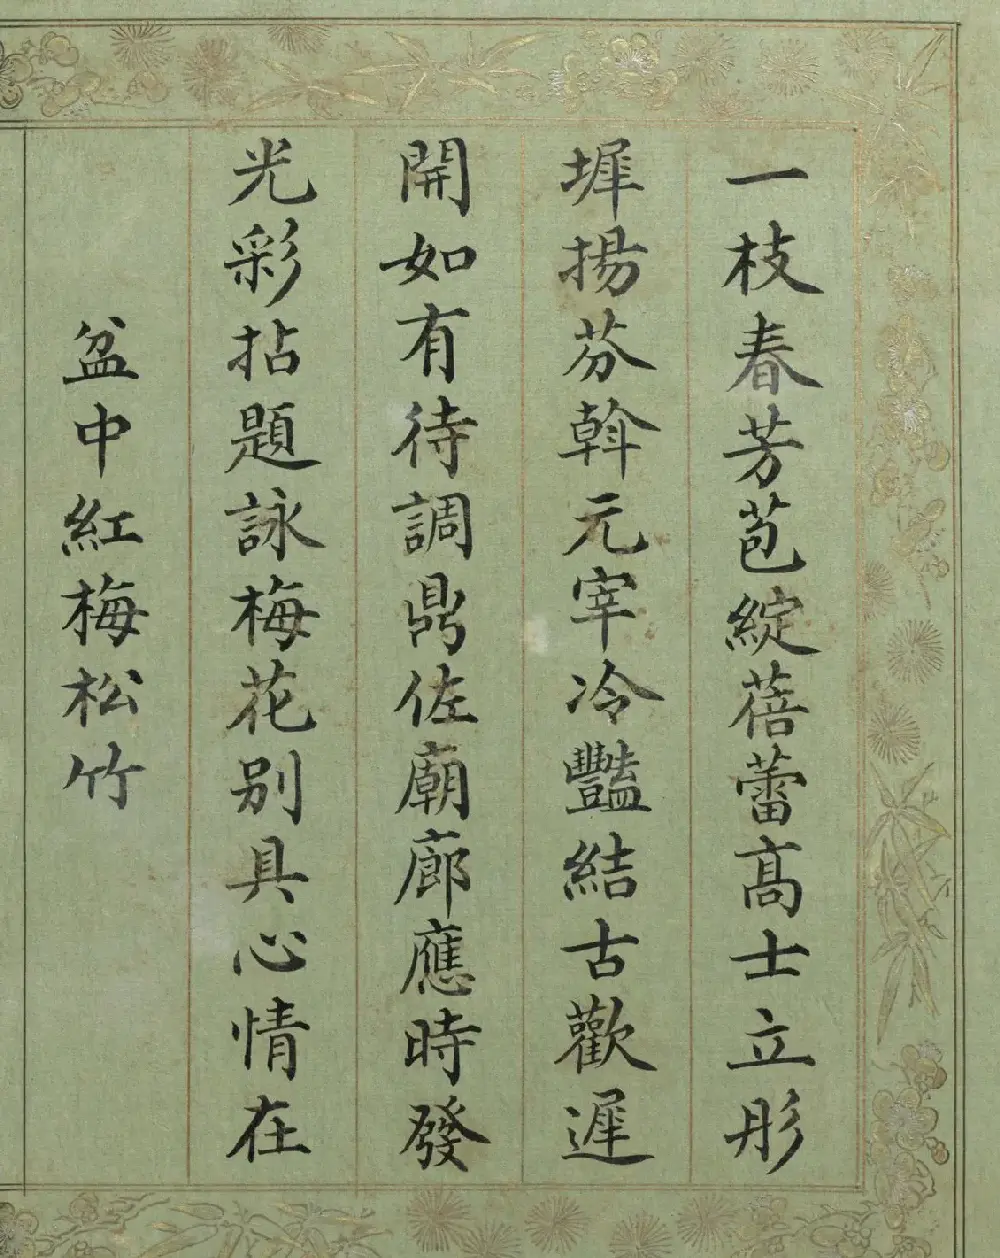 一枝春芳苞綻蓓蕾高士立彤
墀揚芬斡元宰冷豔結古歡遲
開如有待調鼎佐廟廊應時發
光彩拈題詠梅花别具心情在
盆中紅梅松竹